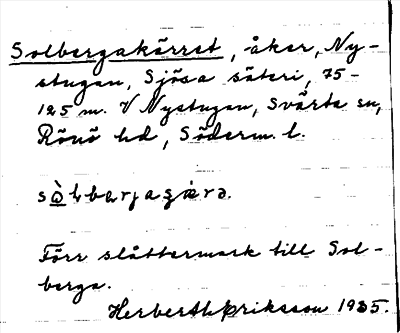 Solbergakärret, åker, Ny-
stugan, Sjösa säteri, 75-
125 m. V Nystugan, Svärta sn,
Rönö hd, Söderm. l.
Förr slåttermark till Sol-
berga.
Herberth Eriksson 1935.